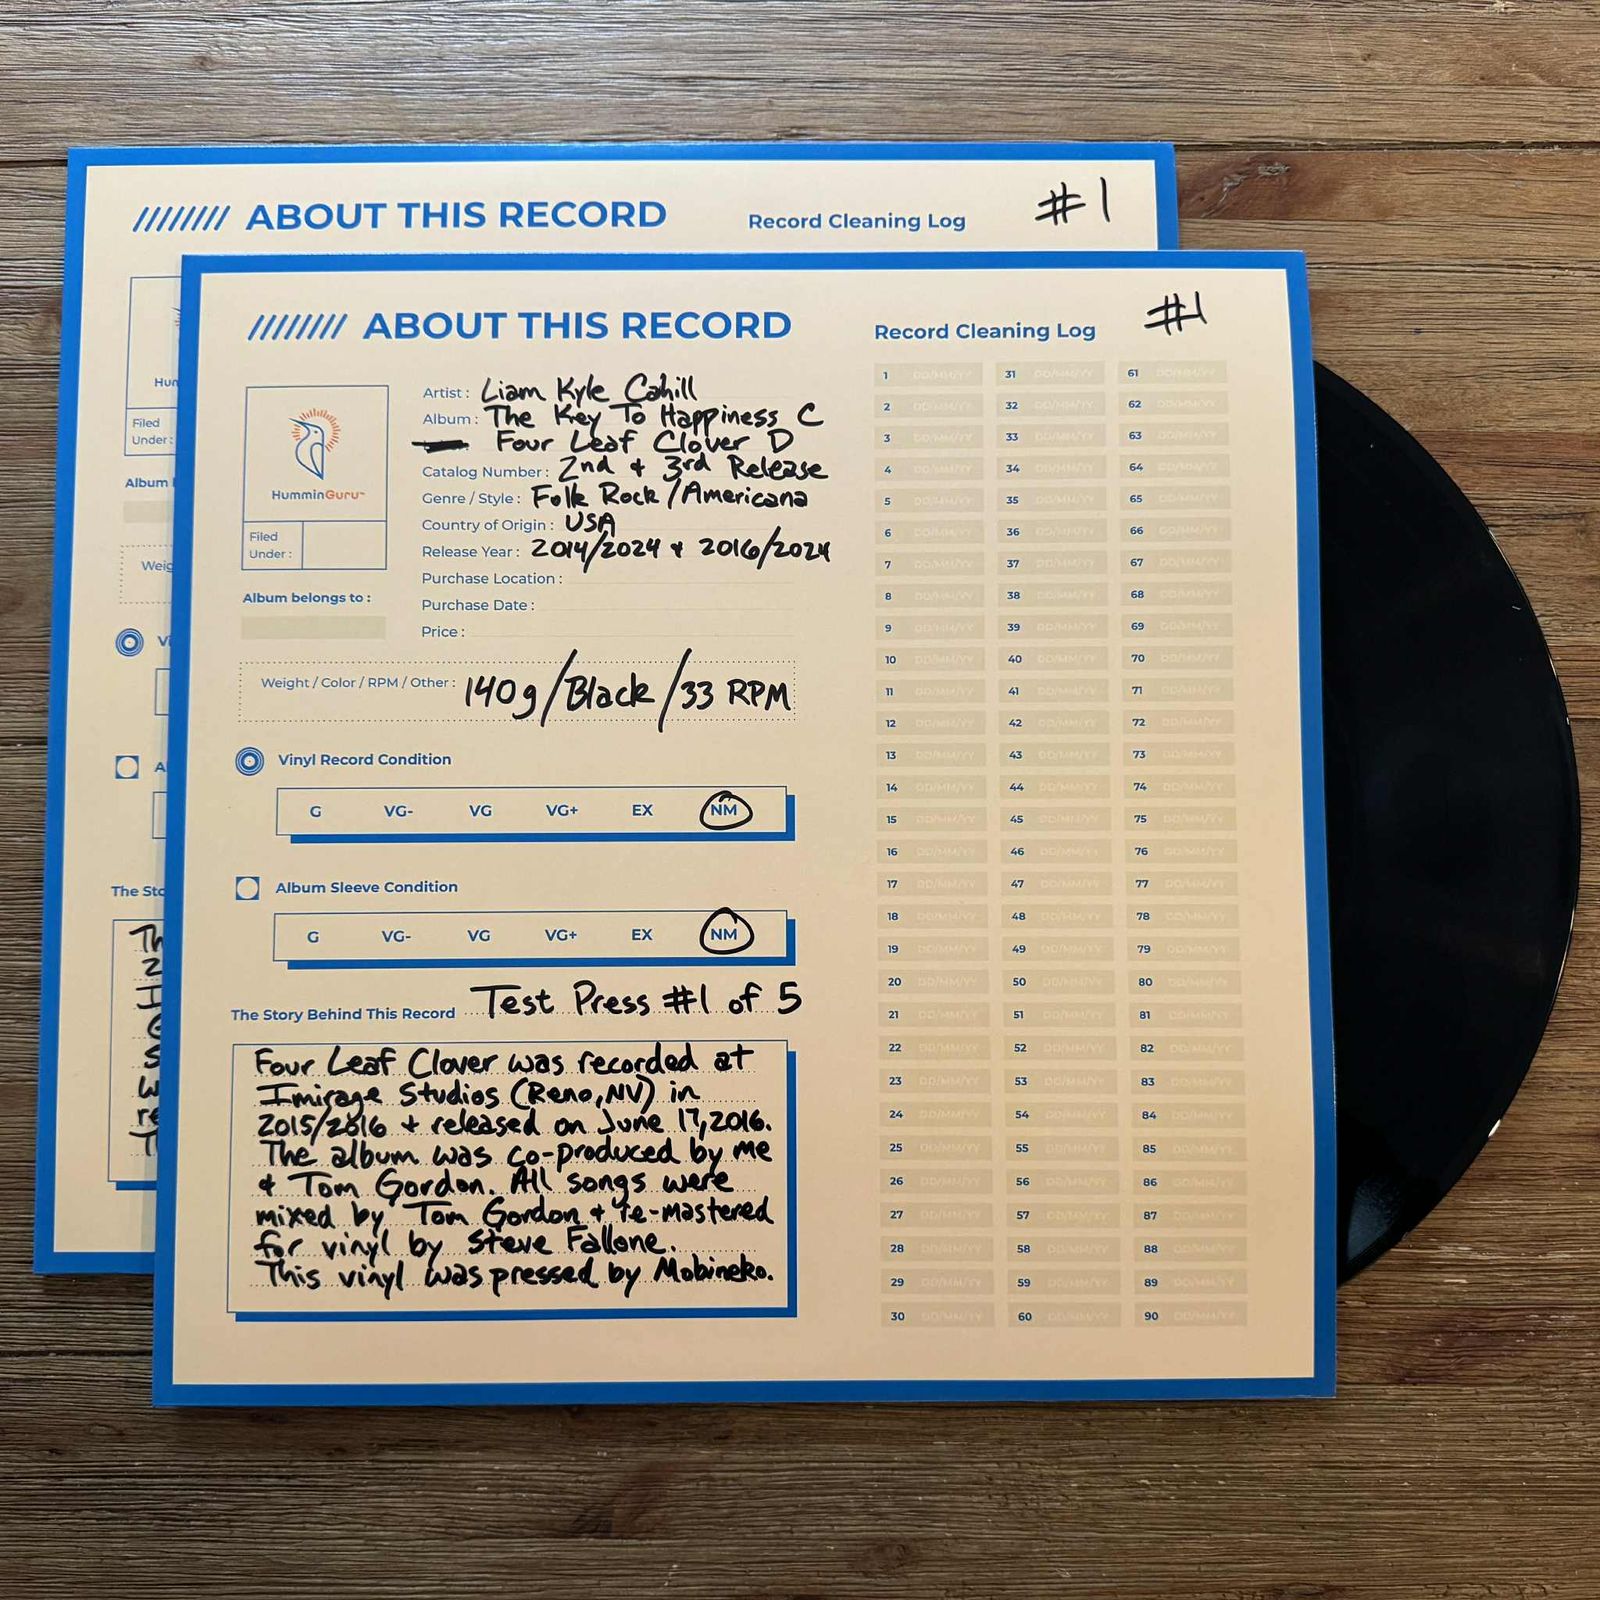 //////// ABOUT THIS RECORD
Record Cleaning Log
#1
Hum
Filed
Under:
Album
Weig
Vi
A
The Sto
Th
2
I
S
W
re
T
//////// ABOUT THIS RECORD
Record Cleaning Log
#1
HumminGuru™
Filed
Under :
Album belongs to :
Artist : Liam Kyle Cahill
Album : The Key To Happiness C
Four Leaf Clover D
Catalog Number : 2nd + 3rd Release
Genre / Style : Folk Rock / Americana
Country of Origin : USA
Release Year : 2014/2024 + 2016/2024
Purchase Location :
Purchase Date :
Price :
Weight / Color / RPM / Other : 140g / Black / 33 RPM
Vinyl Record Condition
G VG- VG VG+ EX NM
Album Sleeve Condition
G VG- VG VG+ EX NM
The Story Behind This Record Test Press #1 of 5
Four Leaf Clover was recorded at
Imirage Studios (Reno, NV) in
2015/2016 + released on June 17, 2016.
The album was co-produced by me
+ Tom Gordon. All songs were
mixed by Tom Gordon + re-mastered
for vinyl by Steve Fallone.
This vinyl was pressed by Mobineko.
1 DD/MM/YY 31 DD/MM/YY 61 DD/MM/YY
2 DD/MM/YY 32 DD/MM/YY 62 DD/MM/YY
3 DD/MM/YY 33 DD/MM/YY 63 DD/MM/YY
4 DD/MM/YY 34 DD/MM/YY 64 DD/MM/YY
5 DD/MM/YY 35 DD/MM/YY 65 DD/MM/YY
6 DD/MM/YY 36 DD/MM/YY 66 DD/MM/YY
7 DD/MM/YY 37 DD/MM/YY 67 DD/MM/YY
8 DD/MM/YY 38 DD/MM/YY 68 DD/MM/YY
9 DD/MM/YY 39 DD/MM/YY 69 DD/MM/YY
10 DD/MM/YY 40 DD/MM/YY 70 DD/MM/YY
11 DD/MM/YY 41 DD/MM/YY 71 DD/MM/YY
12 DD/MM/YY 42 DD/MM/YY 72 DD/MM/YY
13 DD/MM/YY 43 DD/MM/YY 73 DD/MM/YY
14 DD/MM/YY 44 DD/MM/YY 74 DD/MM/YY
15 DD/MM/YY 45 DD/MM/YY 75 DD/MM/YY
16 DD/MM/YY 46 DD/MM/YY 76 DD/MM/YY
17 DD/MM/YY 47 DD/MM/YY 77 DD/MM/YY
18 DD/MM/YY 48 DD/MM/YY 78 DD/MM/YY
19 DD/MM/YY 49 DD/MM/YY 79 DD/MM/YY
20 DD/MM/YY 50 DD/MM/YY 80 DD/MM/YY
21 DD/MM/YY 51 DD/MM/YY 81 DD/MM/YY
22 DD/MM/YY 52 DD/MM/YY 82 DD/MM/YY
23 DD/MM/YY 53 DD/MM/YY 83 DD/MM/YY
24 DD/MM/YY 54 DD/MM/YY 84 DD/MM/YY
25 DD/MM/YY 55 DD/MM/YY 85 DD/MM/YY
26 DD/MM/YY 56 DD/MM/YY 86 DD/MM/YY
27 DD/MM/YY 57 DD/MM/YY 87 DD/MM/YY
28 DD/MM/YY 58 DD/MM/YY 88 DD/MM/YY
29 DD/MM/YY 59 DD/MM/YY 89 DD/MM/YY
30 DD/MM/YY 60 DD/MM/YY 90 DD/MM/YY